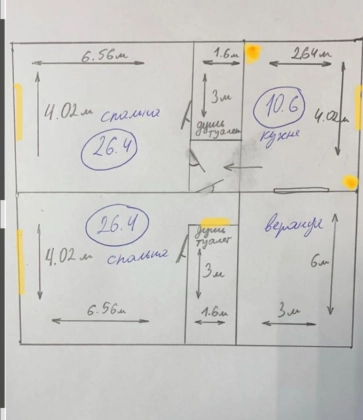 6.56м
1.6м
2.64м
4.02м
спальня
26.4
3м
душь
туалет
10.6
кухня
4.02м
26.4
4.02м
спальня
6.56м
душь
туалет
3м
1.6м
веранда
6м
3м